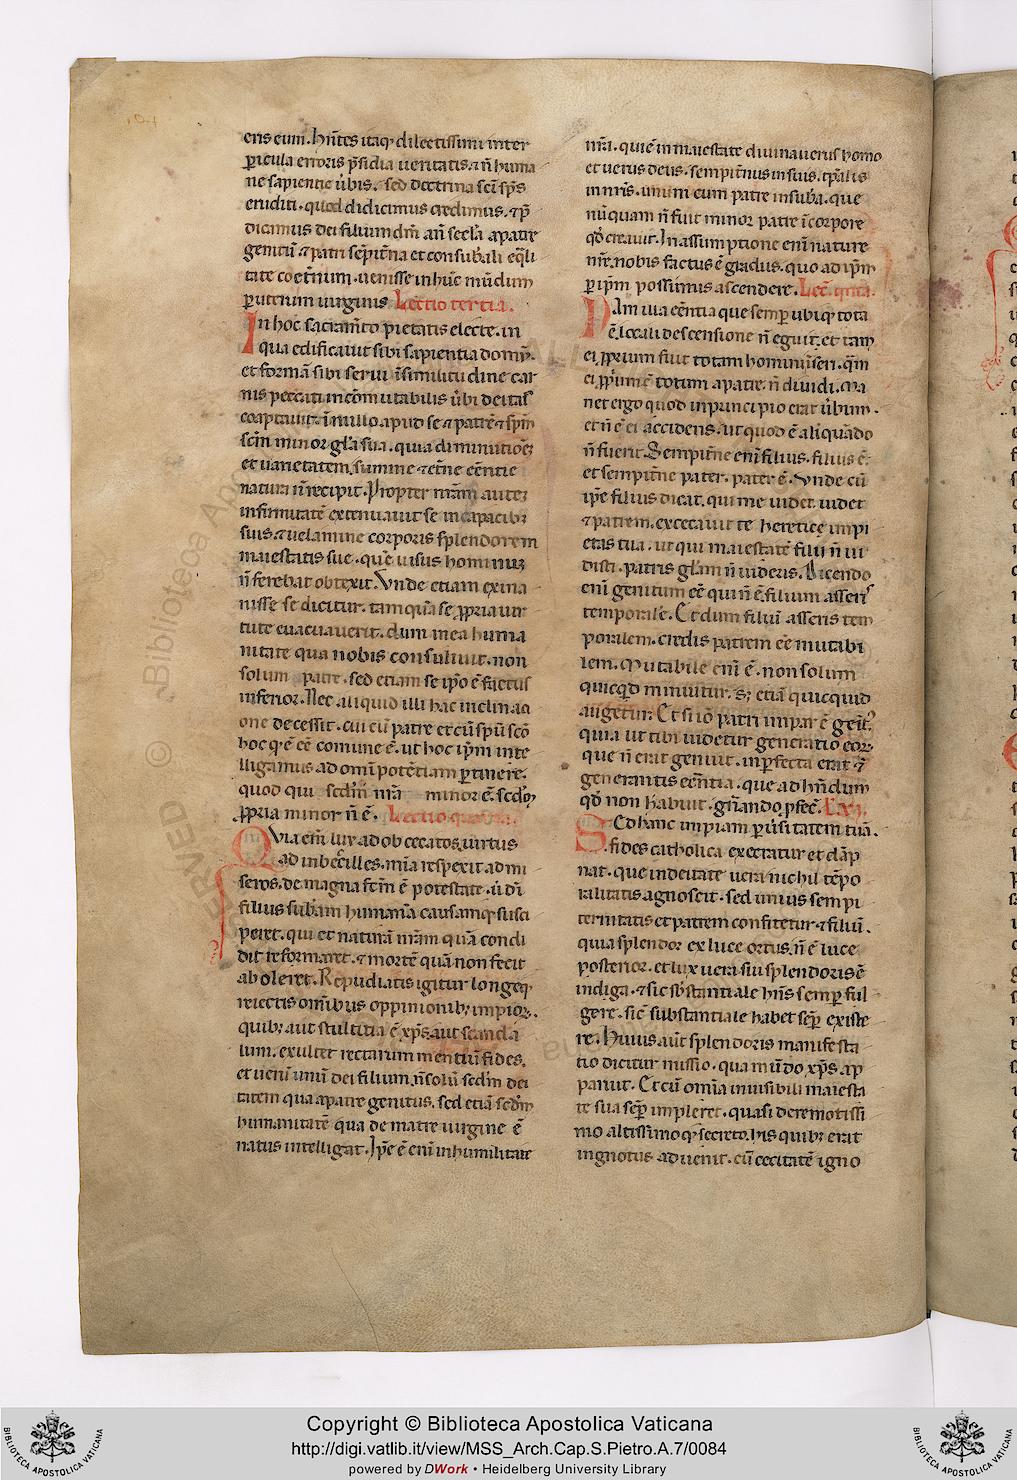 eris eum. hn̄tes itaq; dilectissimi inter
ꝑicula erroris p̄sidia ueritatis. ⁊ n̄ huma
ne sapientie ůbis. sed doctrina sc̄i sp̄s
eruditi. quod didicimus credimus. ⁊ p̄
dicamus dei filium dm̄ an̄ sec̄la a patre
genitū ⁊ patri sēpit̄na et consub̄ali eq̄li
tate coet̄num. uenisse in hūc mūdum
ꝑ uterum uirginis Lectio tertia.
In hoc sacram̄to pietatis electe. in
qua edificauit sibi sapientia domū.
et formā sibi serui ī similitudine car
nis peccati incōmutabilis ůbi deitas
coaptauit. ī nullo apud se ⁊ patrē ⁊ sp̄m
sc̄m minor gl̄a sua. quia diminutiōēʒ
et uarietatem summe ⁊ et̄ne eēntie
natura n̄ recipit. Propter nr̄am auteʒ
infirmitatē extenuauit se incapacibꝫ
suis. ⁊ uelamine corporis splendorem
maiestatis sue. quē uisus hominuʒ
n̄ ferebat obtexit. Vnde etiam exina
nisse se dicitur. tamquā se ꝓpria uir
tute euacuauerit. dum in ea huma
nitate qua nobis consuluit. non
solum patre. sed etiam se ip̄o ē factus
inferior. Nec aliquid illi hac inclinati
one decessit. cui cū patre et cū sp̄u sc̄o
hoc q̄ ē eē comune ē. ut hoc ip̄m inte
lligamus ad om̄ipotētiam ꝑtinere.
quod qui sed̄m nr̄a minor ē. sed̄m
ꝓpria minor n̄ ē. Lectio quarta.
Quia em̄ lux ad obcecatos. uirtus
ad inbecilles. mīa respexit ad mi
seros. de magna fc̄m ē potestate. ů dī
filius subāam humanā causamq; susci
peret. qui et naturā nr̄am quā condi
dit reformaret. ⁊ mortē quā non fecit
aboleret. Repudiatis igitur longeq;
reiectis om̄ibus oppinionibꝫ impioꝝ.
quibꝫ aut stultitia ē xp̄s. aut scanda
lum. exultet rectarum mentiū fides.
et uerū unū dei filium. n̄ solū sed̄m dei
tatem qua a patre genitus. sed etiā sed̄m
humanitatē qua de matre uirgine ē
natus intelligat. Ip̄e ē enī in humilitate
nr̄a. qui ē in maiestate diuina uerus homo
et uerus deus. sempit̄nus in suis. tp̄alis
in nr̄is. unum cum patre in sub̄a. que
nūquam n̄ fuit minor patre ī corpore
qd̄ creauit. In assumptione enī nature
nr̄e. nobis factus ē gradus. quo ad ip̄m
ꝑ ip̄m possimus ascendere. Lec̄. quīta.
Nam illa eēntia que semꝑ ubiq; tota
ē. locali descensione n̄ eguit. et tam
ei ꝓprium fuit totam homini īseri. qm̄
ei ꝓpriū ē totum a patre. n̄ diuidi. Ma
net ergo quod in principio erat ůbum.
et n̄ ē ei accidens. ut quod ē aliquādo
n̄ fuerit. Sempit̄ne enī filius. filius ē.
et sempit̄ne pater. pater ē. Vnde cū
ip̄e filius dicat. qui me uidet. uidet
⁊ patrem. excecauit te heretice impi
etas tua. ut qui maiestatē filii n̄ ui
disti. patris gl̄am n̄ uideris. Dicendo
enī genitum eē qui n̄ ē. filium asseris
temporale. Et dum filiū asseris tem
poralem. credis patrem eē mutabi
lem. Mutabile enī ē. non solum
quicq̄d minuitur. sꝫ etiā quicquid
augetur. Et si iō patri impar ē genit̄.
quia ut tibi uidetur generatio eoꝝ.
que n̄ erat genuit. inꝑfecta erat ⁊
generantis eēntia. que ad hn̄dum
qd̄ non habuit. gn̄ando ꝓfec̄.
Sed hanc impiam ꝑůsitatem tuā.
fides catholica execratur et dāp
nat. que in deitate uera nichil tēpo
ralitatis agnoscit. sed unius sempi
ternitatis et patrem confitetur. ⁊ filiū.
quia splendor ex luce ortus. n̄ ē luce
posterior. et lux uera sui splendoris ē
indiga. ⁊ sic sb̄stantiale hn̄s semꝑ ful
gere. sic̄ substantiale habet seꝑ existe
re. Huius aut̄ splendoris manifesta
tio dicitur missio. qua mūdo xp̄s. ap
paruit. Et cū om̄ia inuisibili maiesta
te sua seꝑ impleret. quasi de remotissi
mo altissimoq; secreto. his quibꝫ erat
ingnotus aduenit. cū cecitatē igno
© Biblioteca Apostolica Vaticana
Copyright © Biblioteca Apostolica Vaticana
http://digi.vatlib.it/view/MSS_Arch.Cap.S.Pietro.A.7/0084
powered by DWork • Heidelberg University Library
BIBLIOTECA APOSTOLICA VATICANA
BIBLIOTECA APOSTOLICA VATICANA